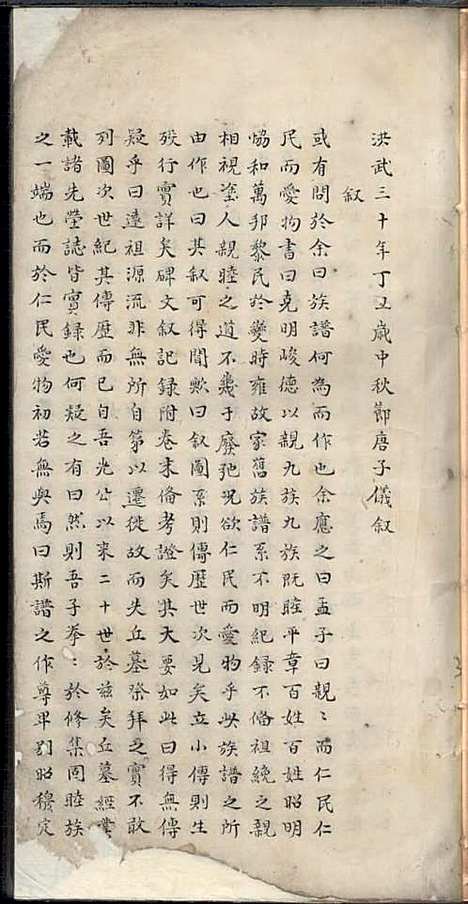 洪武三十年丁丑歲中秋節唐子儀叙
叙
或有問於余曰族譜何為而作也余應之曰孟子曰親〻而仁民仁
民而愛物書曰克明峻德以親九族九族既睦平章百姓百姓昭明
恊和萬邦黎民於變時雍故家舊族譜系不明紀録不脩祖絻之親
相視塗人親睦之道不幾于廢弛况欲仁民而愛物乎此族譜之所
由作也曰其叙可得聞歟曰叙圖系則傳歷世次見矣立小傳則生
殁行實詳矣碑文叙記録附卷末俻考證矣其大要如此曰得無傳
疑乎曰遠祖源流非無所自第以遷徙故而失丘墓祭拜之實不敢
列圖次世紀其傳歷而已自吾光公以來二十世於兹矣丘墓經業
載諸先塋誌皆實録也何疑之有曰然則吾子拳〻於修集同睦族
之一端也而於仁民愛物初若無與焉曰斯譜之作尊卑别昭穆定